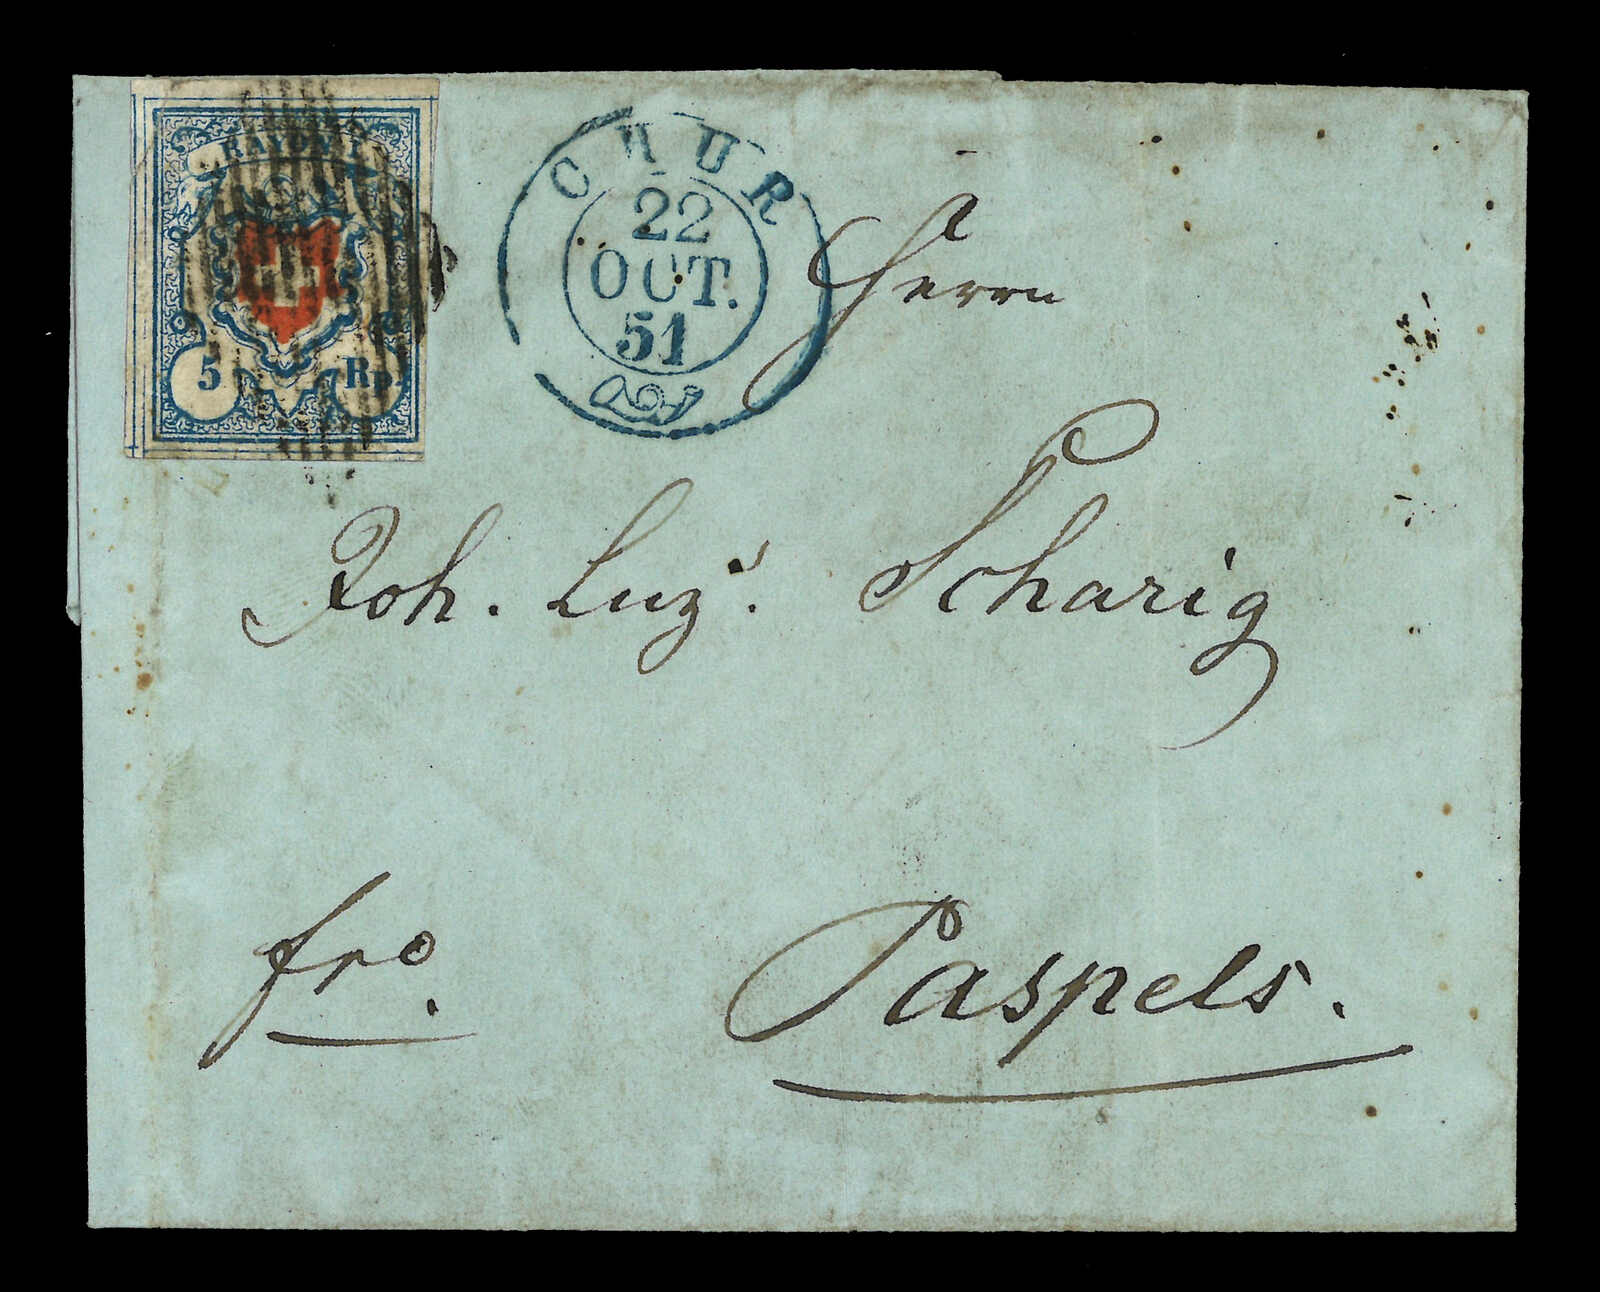 RAYON I
5 Rp.
CHUR
22
OCT.
51
Herrn
Joh. Luz.s Scharig
fro.
Paspels.